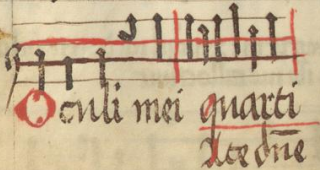 Oculi mei quarti
Ad te dn̄e